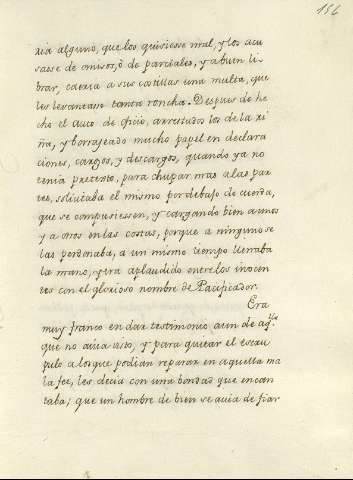 156
xia alguno, que los quisiesse mal, y los acu
sasse de omisos, ò de parciales, y a buen li
brar, caeria a sus costillas una multa, que
les levantasse tanta roncha. Despues de he
cho el auto de oficio, arrestados los de la ri
ña, y borrajeado mucho papel en declara
ciones, cargos, y descargos, quando ya no
tenia pretexto, para chupar mas a las par
tes, solicitaba el mismo por debajo de cuerda,
que se compusiessen, y cargando bien a unos
y a otros en las costas, porque a ninguno se
las perdonaba, a un mismo tiempo llenaba
la mano, y era aplaudido entre los inocen
tes con el glorioso nombre de Pacificador.
Era
muy franco en dar testimonio aun de aq.llo
que no avia visto, y para quitar el escru
pulo a los que podian reparar en aquella ma
la fee, les decia con una bondad que encan
taba; que un hombre de bien se avia de fiar